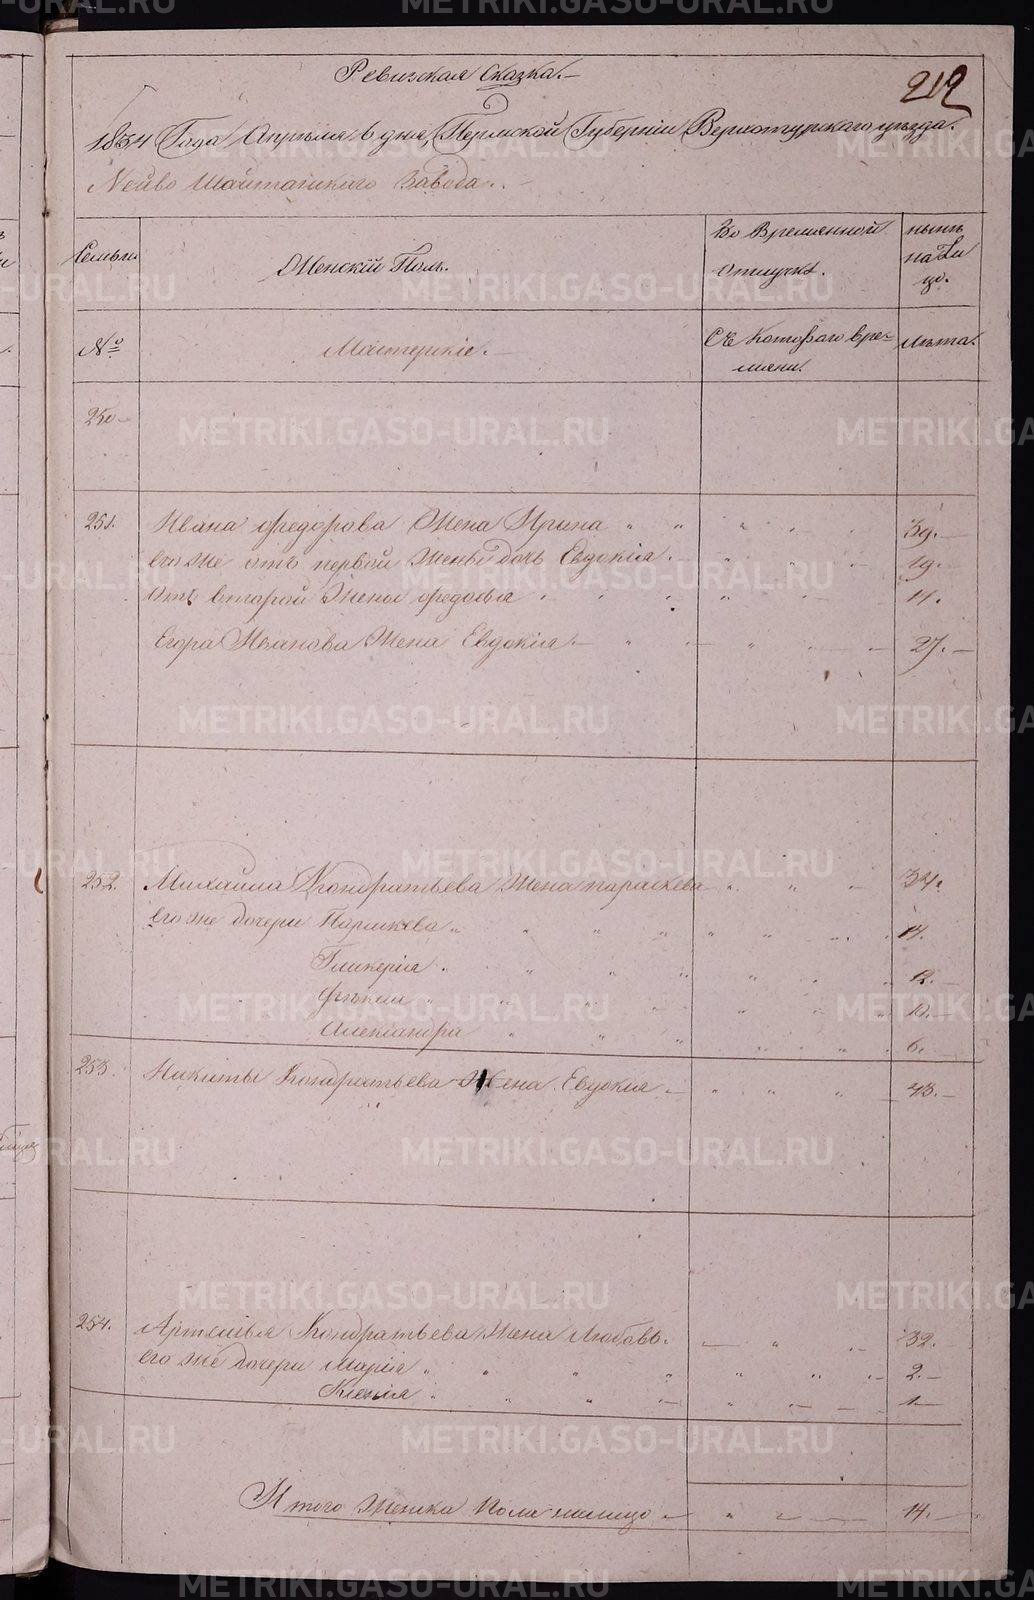 Ревизская Сказка.
212
1834 Года Апрѣля 6 дня, Пермской Губерніи Верхотурскаго уѣзда.
Нейво Шайтанскаго Завода.
Семьи.
Женскій Полъ.
Во Временной
отлучкѣ.
нынѣ
на Ли
цо.
№
Мастерскіе.
Съ Котораго вре-
мяни.
лѣта.
250
251. Ивана Федорова Жена Ирина 39.
его же отъ первой Жены дочь Евдокія 19.
отъ второй Жены Федосья 11.
Егора Иванова Жена Евдокія 27.
252. Михаила Кондратьева Жена параскева 34.
его же дочери Парасkева 14.
Гликерія 12.
Фекла 10.
Александра 6.
253. Никиты Кондратьева Жена Евдокия 43.
254. Артемья Кондратьева Жена Любовь. 32.
его же дочери Марія 2.
Ксенія 1
Итого Женска Пола налицо 14.
METRIKI.GASO-URAL.RU